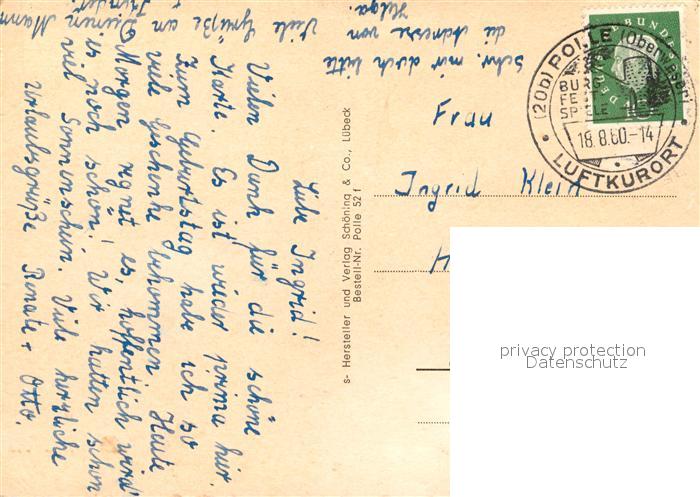 Liebe Ingrid!
Vielen Dank für die schöne
Karte. Es ist wieder prima hier.
Zum Geburtstag habe ich so
viele Geschenke bekommen. Heute
Morgen regnet es, hoffentlich wird
es noch schön! Wir hatten schon
viel Sonnenschein. Viele herzliche
Urlaubsgrüße Renate + Otto.
Viele Grüße an Deinen Mann
+ Kinder!
Schr. mir doch bitte
die Adresse von
Helga.
s- Hersteller und Verlag Schöning & Co., Lübeck
Bestell-Nr. Polle 52 f
(20b) POLLE (Oberweser)
BURG
FEST
SPIELE
18.8.60.-14
LUFTKURORT
DEUTSCHE BUNDES
10
Frau
Ingrid Klein
H
privacy protection
Datenschutz